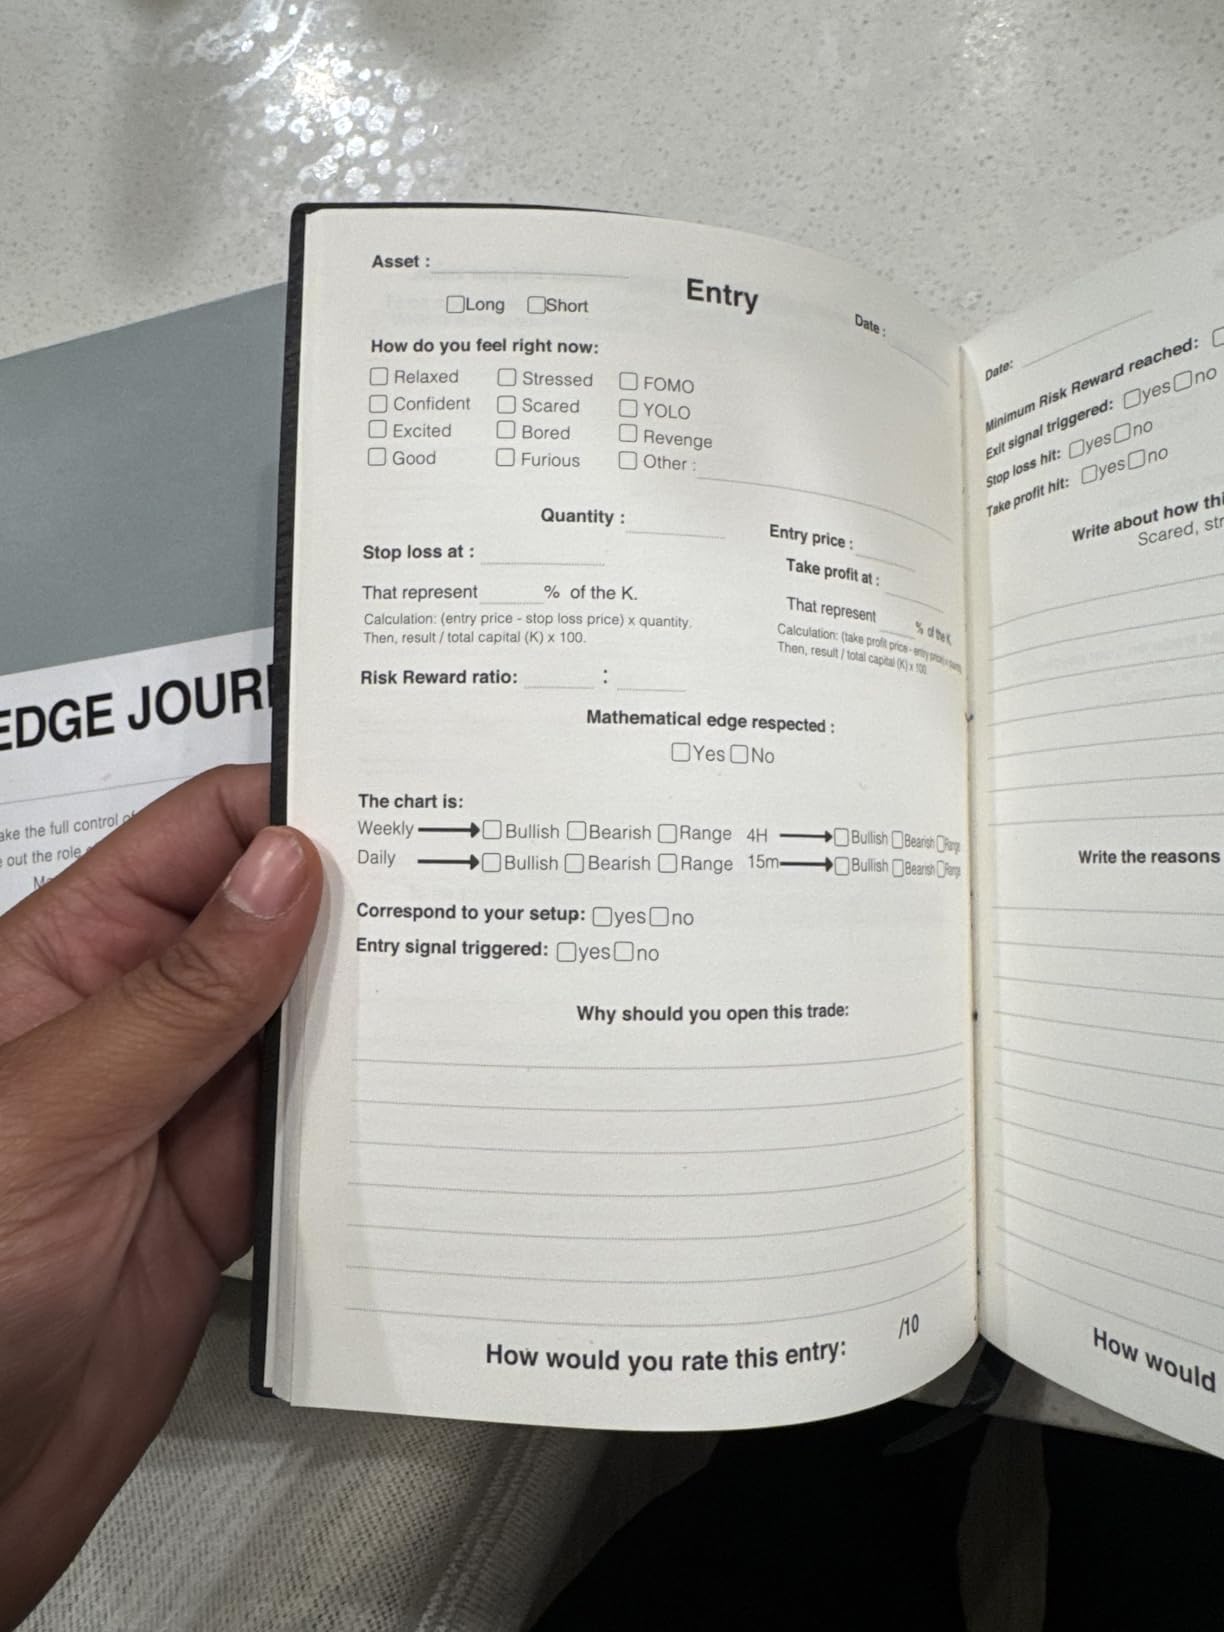 Asset :
Entry
☐Long ☐Short
Date :
How do you feel right now:
☐ Relaxed ☐ Stressed ☐ FOMO
☐ Confident ☐ Scared ☐ YOLO
☐ Excited ☐ Bored ☐ Revenge
☐ Good ☐ Furious ☐ Other :
Quantity :
Entry price :
Stop loss at :
Take profit at :
That represent % of the K.
Calculation: (entry price - stop loss price) x quantity.
Then, result / total capital (K) x 100.
That represent % of the K.
Calculation: (take profit price - entry price) x
Then, result / total capital (K) x 100
Risk Reward ratio: :
Mathematical edge respected :
☐Yes ☐No
The chart is:
Weekly → ☐Bullish ☐Bearish ☐Range 4H → ☐Bullish ☐Bearish ☐Range
Daily → ☐Bullish ☐Bearish ☐Range 15m → ☐Bullish ☐Bearish ☐Range
Correspond to your setup: ☐yes ☐no
Entry signal triggered: ☐yes ☐no
Why should you open this trade:
How would you rate this entry: /10
Date:
Minimum Risk Reward reached: ☐
Exit signal triggered: ☐yes ☐no
Stop loss hit: ☐yes ☐no
Take profit hit: ☐yes ☐no
Write about how thi
Scared, str
Write the reasons
How would
EDGE JOUR
ake the full control of
out the role